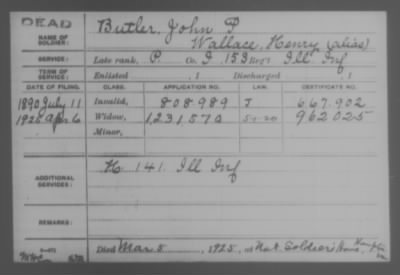 DEAD
NAME OF SOLDIER: Butler, John P
Wallace, Henry (alias)
SERVICE: Late rank, P. Co. I, 153 Reg't Ill Inf
TERM OF SERVICE: Enlisted , 1 Discharged , 1
DATE OF FILING. CLASS. APPLICATION NO. LAW. CERTIFICATE NO.
1890 July 11 Invalid, 808,989 J 667.902
1925 Apr 6 Widow, 1,231,570 5-1-20 962025
Minor,
ADDITIONAL SERVICES: H 141. Ill Inf
REMARKS:
Died Mar 5, 1925, at Nat. Soldiers Home